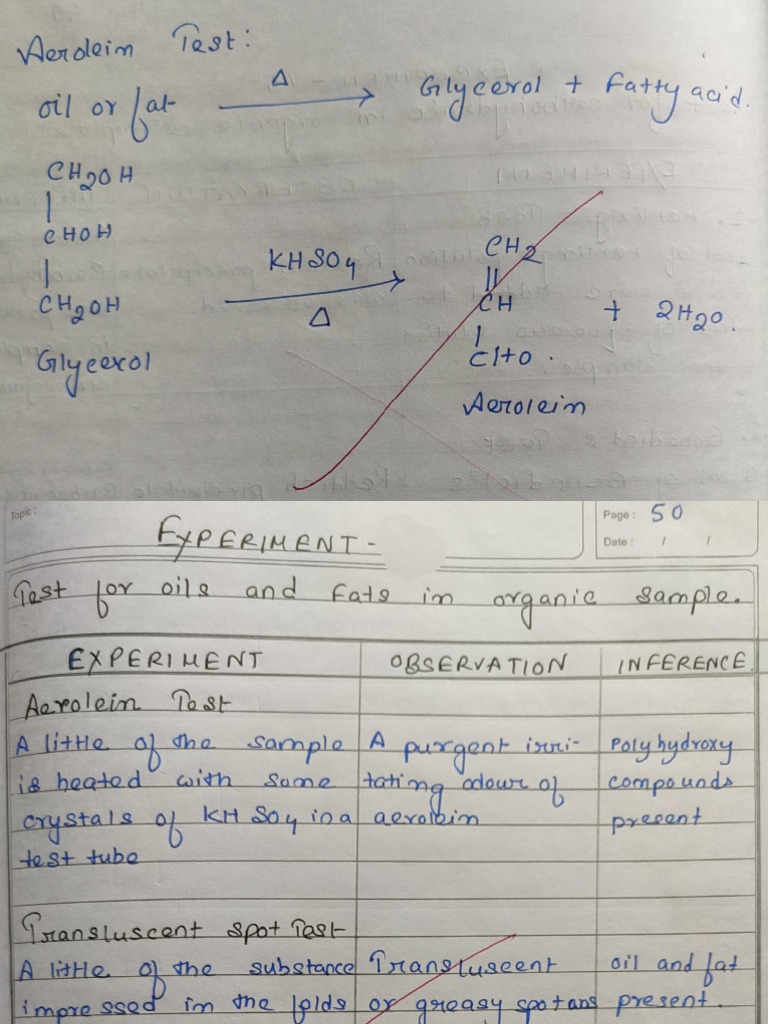 Aerolein Test:
oil or fat Δ Glycerol + Fatty acid.
CH2OH
|
CHOH
|
CH2OH
Glycerol
KHSO4
Δ
CH2
||
CH
|
CHO.
Aerolein
+ 2H2O.
Topic:
Page: 50
Date: / /
EXPERIMENT-
Test for oils and Fats in organic sample.
EXPERIMENT OBSERVATION INFERENCE.
Aerolein Test
A little of the sample A purgent irri- Polyhydroxy
is heated with some tating odour of compounds
crystals of KHSO4 in a aerolein present
test tube
Transluscent spot Test
A little of the substance Transluscent oil and fat
impressed in the folds or greasy spot ans present.